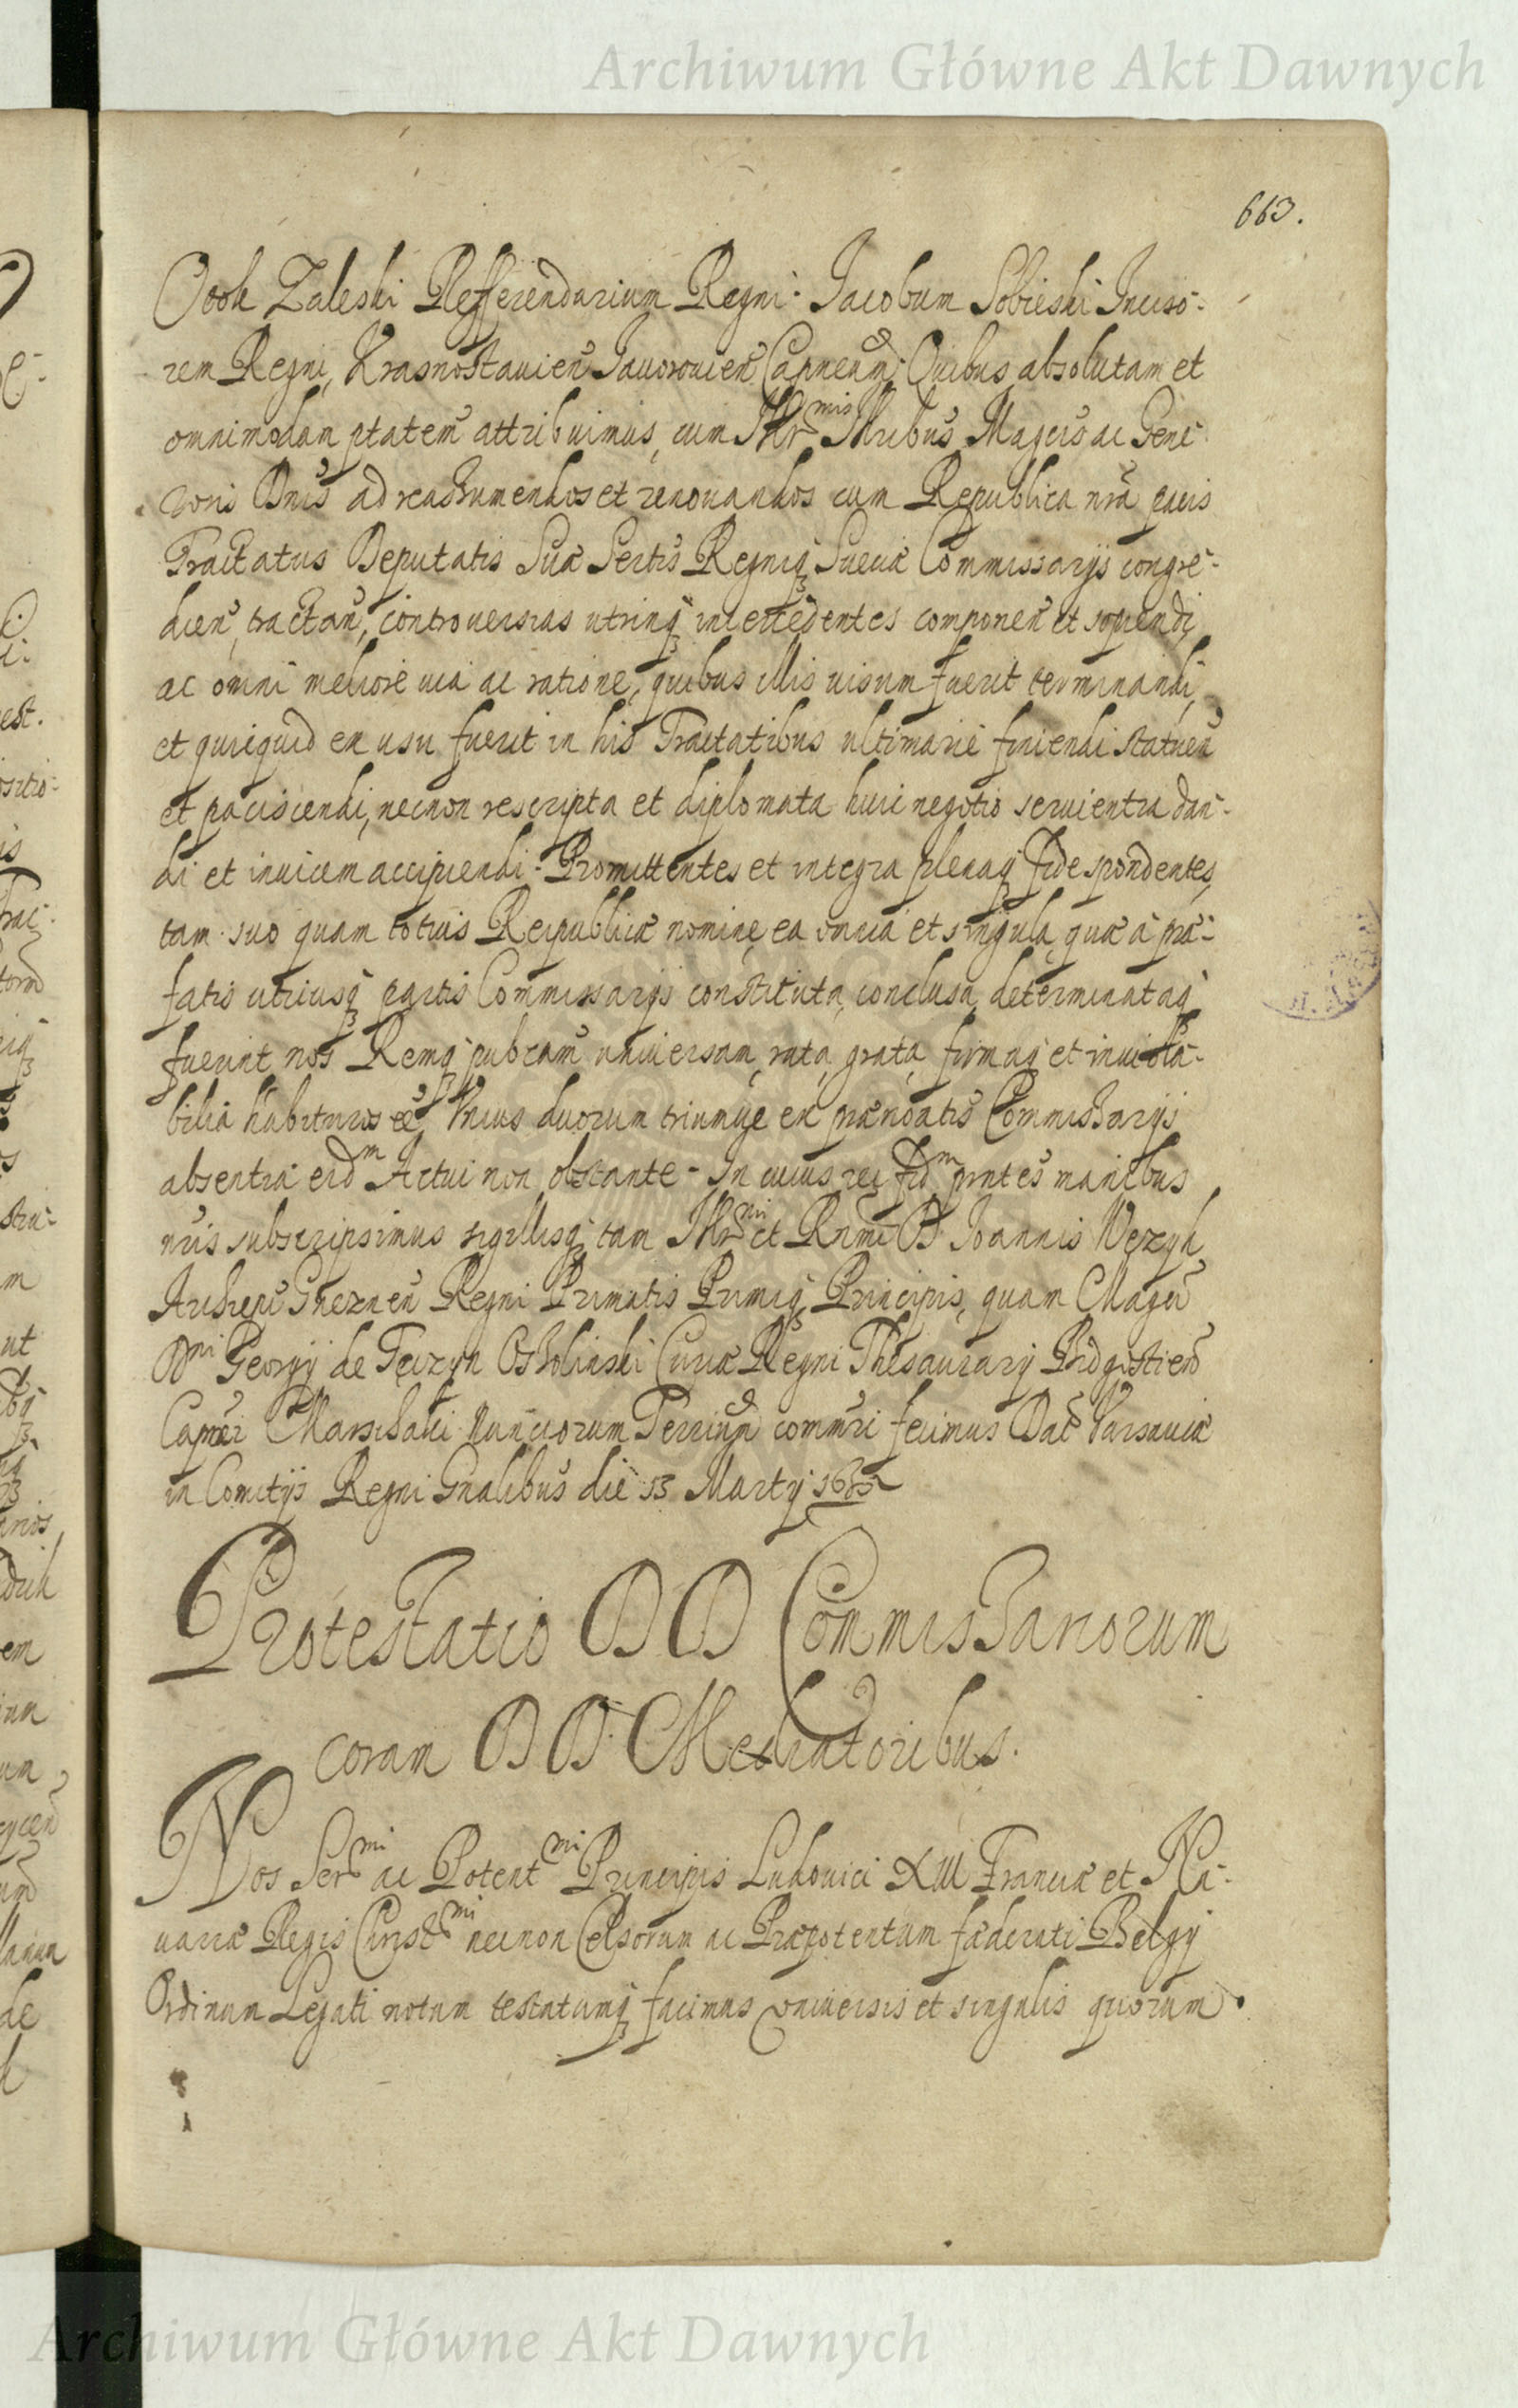 Archiwum Główne Akt Dawnych
663.
Otok Zaleski Refferendarium Regni. Jacobum Sobieski Inciso-
rem Regni, Krasnostauien̄ Jauorouien̄ Capneum. Quibus absolutam et
omnimodam ptatem attribuimus, cum Illr̄mis Illribus Magcis ac Gene-
rosis Dn̄is ad reassumendos et renouandos cum Republica nr̄a pacis
Tractatus Deputatis Suæ Sertis Regniq Sueciæ Commissarijs congre-
dien̄, tractan̄, controuersias utrinq intercedentes componen̄ et sopiendi,
ac omni meliore uia ac ratione, quibus illis uisum fuerit terminandi,
et quicquid ex usu fuerit in his Tractatibus ultimarie finiendi statuen̄
et paciscendi, necnon rescripta et diplomata huic negotio seruientia dan-
di et inuicem accipiendi. Promittentes et integra plenaq fide spondentes,
tam suo quam totius Reipublicæ nomine, ea omnia et singula, quæ à præ-
fatis utriusq partis Commissarijs constituta, conclusa, determinataq
fuerint nos Remq pubcam uniuersam, rata, grata, firmaq et inuiola-
bilia habituros eē, Unius duorum triumue ex prænoatis Commissarijs
absentia eidm Actui non obstante. In cuius rei fidm pn̄tes manibus
nr̄is subscripsimus sigillisq tam Illr̄mi et Rn̄mi D. Joannis Wężyk
Archiepi Gneznen̄ Regni Primatis Primiq Principis, quam Magci
Dni Georgij de Tęczyn Ossolinski Curiæ Regni Thesaurarij Bidgostien̄
Capnei Marschalci Nunciorum Terrium commri fecimus Dat̄ Varsauiæ
in Comitijs Regni Gn̄alibus die 13 Martij 1635
Protestatio DD Commissariorum
coram DD. Mediatoribus.
Nos Sermi ac Potentmi Principis Ludouici XIII Franciæ et Na-
uarræ Regis Christmi necnon Celsorum ac Præpotentum fæderati Belgij
Ordinum Legati notum testatumq facimus uniuersis et singulis quorum
Archiwum Główne Akt Dawnych